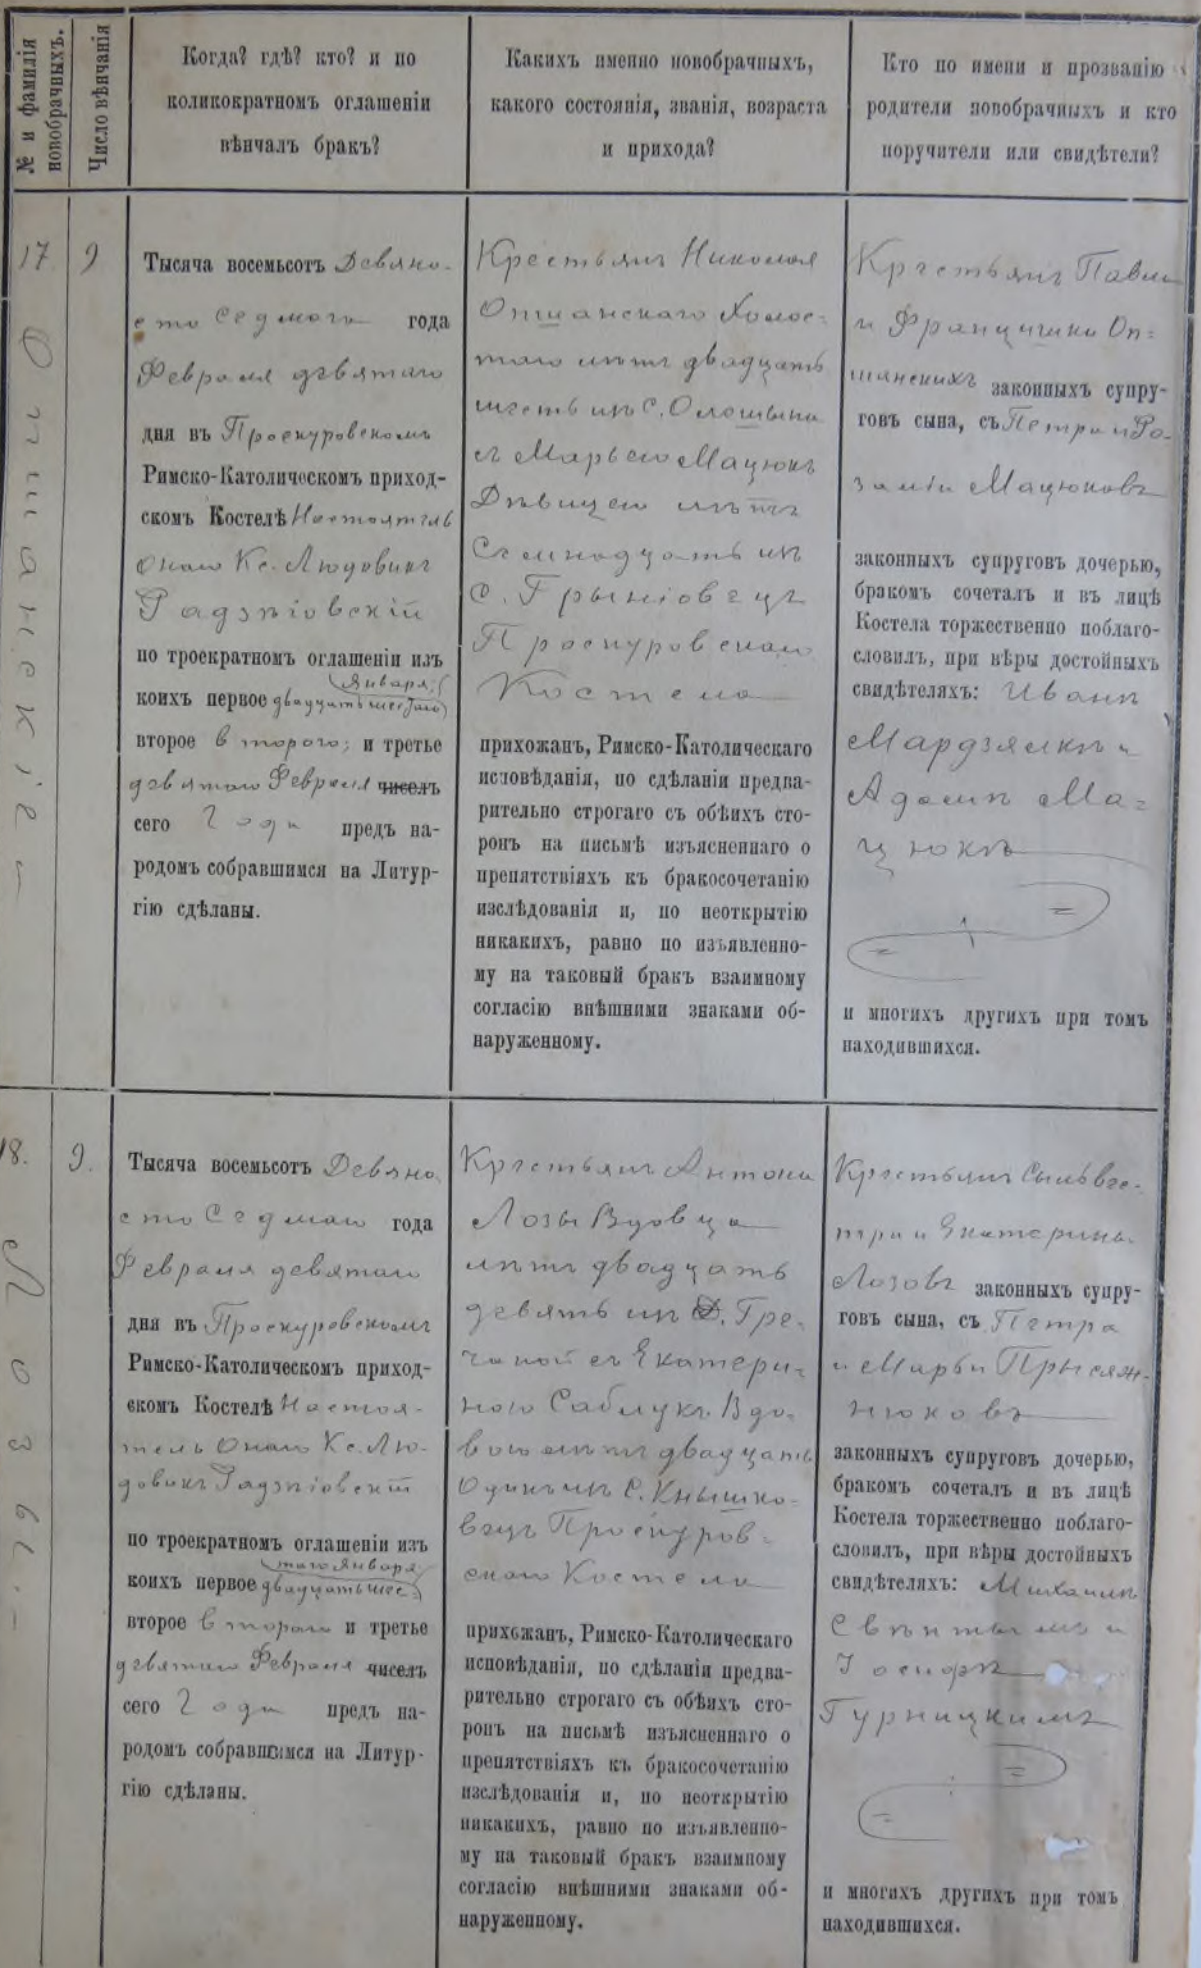 № и фамилія
новобрачныхъ.
Число вѣнчанія
Когда? гдѣ? кто? и по
коликократномъ оглашеніи
вѣнчалъ бракъ?
Какихъ именно новобрачныхъ,
какого состоянія, званія, возраста
и прихода?
Кто по имени и прозванію
родители новобрачныхъ и кто
поручители или свидѣтели?
17
Опшанскіе
9
Тысяча восемьсотъ Девяно-
сто седмого года
Февраля девятаго
дня въ Проскуровскомъ
Римско-Католическомъ приход-
скомъ Костелѣ Настоятель
онаго Кс. Людовикъ
Радзѣіовскій
по троекратномъ оглашеніи изъ
Января;
коихъ первое двадцать шестаго
второе втораго; и третье
девятаго Февраля чиселъ
сего года предъ на-
родомъ собравшимся на Литур-
гію сдѣланы.
Крестьянъ Николая
Опшанскаго Холос-
таго лѣтъ двадцать
шесть изъ с. Олешина
съ Марьею Мацюкъ
Дѣвицею лѣтъ
Семнадцать изъ
с. Грыніовецъ
Проскуровскаго
Костела
прихожанъ, Римско-Католическаго
исповѣданія, по сдѣланіи предва-
рительно строгаго съ обѣихъ сто-
ронъ на письмѣ изъясненнаго о
препятствіяхъ къ бракосочетанію
изслѣдованія и, по неоткрытію
никакихъ, равно по изъявленно-
му на таковый бракъ взаимному
согласію внѣшними знаками об-
наруженному.
Крестьянъ Павла
и Францишки Оп-
шанскихъ законныхъ супру-
говъ сына, съ Петра и Ро-
заліи Мацюковъ
законныхъ супруговъ дочерью,
бракомъ сочеталъ и въ лицѣ
Костела торжественно поблаго-
словилъ, при вѣры достойныхъ
свидѣтеляхъ: Иванѣ
Мардзякѣ и
Адамѣ Ма-
цюкѣ
и многихъ другихъ при томъ
находившихся.
18.
Лозы
9.
Тысяча восемьсотъ Девяно-
сто Седмаго года
Февраля девятаго
дня въ Проскуровскомъ
Римско-Католическомъ приход-
скомъ Костелѣ Настоя-
тель онаго Кс. Лю-
довикъ Радзѣіовскій
по троекратномъ оглашеніи изъ
таго Января;
коихъ первое двадцать шес-
второе втораго и третье
девятаго Февраля чиселъ
сего года предъ на-
родомъ собравшимся на Литур-
гію сдѣланы.
Крестьянъ Антона
Лозы Вдовца
лѣтъ двадцать
девять изъ Д. Гре-
чаной съ Екатери-
ною Саблукъ Вдо-
вою лѣтъ двадцать
Одинъ изъ С. Кнышко-
вецъ Проскуров-
скаго Костела
прихожанъ, Римско-Католическаго
исповѣданія, по сдѣланіи предва-
рительно строгаго съ обѣихъ сто-
ронъ на письмѣ изъясненнаго о
препятствіяхъ къ бракосочетанію
изслѣдованія и, по неоткрытію
никакихъ, равно по изъявленно-
му на таковый бракъ взаимному
согласію внѣшними знаками об-
наруженному.
Крестьянъ Сыльвес-
тра и Екатерины
Лозовъ законныхъ супру-
говъ сына, съ Петра
и Марьи Прысяж-
нюковъ
законныхъ супруговъ дочерью,
бракомъ сочеталъ и въ лицѣ
Костела торжественно поблаго-
словилъ, при вѣры достойныхъ
свидѣтеляхъ: Михаилѣ
Свѣнтымъ и
Іосифѣ
Гурницкимъ
и многихъ другихъ при томъ
находившихся.